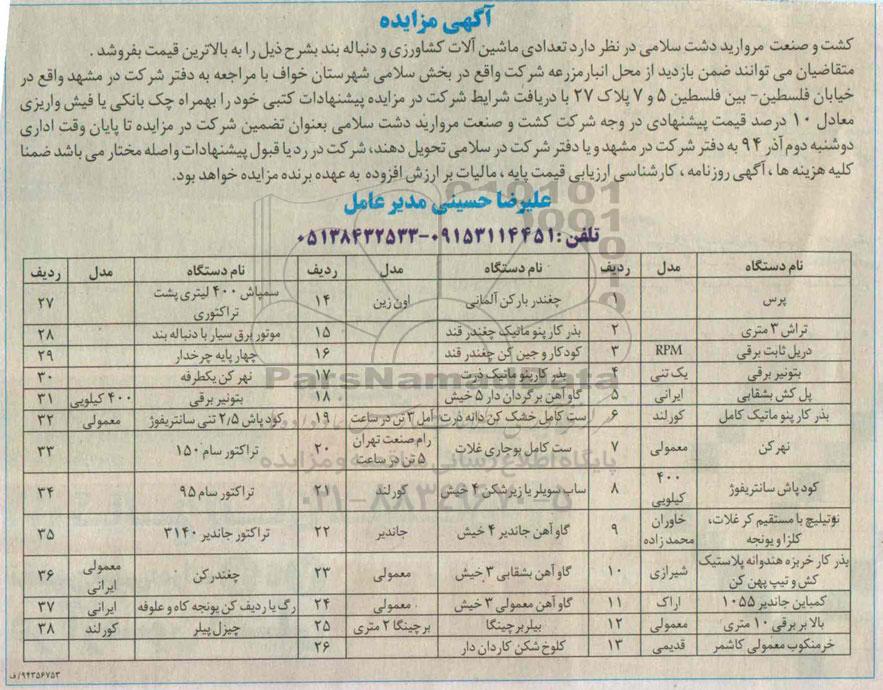 آگهی مزایده
کشت و صنعت مروارید دشت سلامی در نظر دارد تعدادی ماشین آلات کشاورزی و دنباله بند بشرح ذیل را به بالاترین قیمت بفروشد .
متقاضیان می توانند ضمن بازدید از محل انبار مزرعه شرکت واقع در بخش سلامی شهرستان خواف با مراجعه به دفتر شرکت در مشهد واقع در
خیابان فلسطین- بین فلسطین ۵ و ۷ پلاک ۲۷ با دریافت شرایط شرکت در مزایده پیشنهادات کتبی خود را بهمراه چک بانکی یا فیش واریزی
معادل ۱۰ درصد قیمت پیشنهادی در وجه شرکت کشت و صنعت مروارید دشت سلامی بعنوان تضمین شرکت در مزایده تا پایان وقت اداری
دوشنبه دوم آذر ۹۴ به دفتر شرکت در مشهد و یا دفتر شرکت در سلامی تحویل دهند، شرکت در رد یا قبول پیشنهادات واصله مختار می باشد ضمنا
کلیه هزینه ها ، آگهی روزنامه ، کارشناسی ارزیابی قیمت پایه ، مالیات بر ارزش افزوده به عهده برنده مزایده خواهد بود.
علیرضا حسینی مدیر عامل
تلفن : ۰۹۱۵۳۱۱۴۴۵۱-۰۵۱۳۸۴۳۲۵۳۳
نام دستگاه مدل ردیف نام دستگاه مدل ردیف نام دستگاه مدل ردیف
پرس ۱ چغندر بار کن آلمانی اون زین ۱۴ سمپاش ۴۰۰ لیتری پشت تراکتوری ۲۷
تراش ۳ متری ۲ بذر کار پنوماتیک چغندر قند ۱۵ موتور برق سیار با دنباله بند ۲۸
دریل ثابت برقی RPM ۳ کودکار و جین کن چغندر قند ۱۶ چهار پایه چرخدار ۲۹
بتونیر برقی یک تنی ۴ بذر کار پنوماتیک ذرت ۱۷ نهر کن یکطرفه ۳۰
پل کش بشقابی ایرانی ۵ گاو آهن برگردان دار ۵ خیش ۱۸ بتونیر برقی ۴۰۰ کیلویی ۳۱
بذر کار پنوماتیک کامل کورلند ۶ ست کامل خشک کن دانه ذرت آمل ۳ تن در ساعت ۱۹ کود پاش ۲/۵ تنی سانتریفوژ معمولی ۳۲
نهر کن معمولی ۷ ست کامل بوجاری غلات رام صنعت تهران ۵ تن در ساعت ۲۰ تراکتور سام ۱۵۰ ۳۳
کود پاش سانتریفوژ ۴۰۰ کیلویی ۸ ساب سویلر یا زیر شکن ۴ خیش کورلند ۲۱ تراکتور سام ۹۵ ۳۴
نوتیلیچ با مستقیم کر غلات، کلزا و یونجه خاوران محمد زاده ۹ گاو آهن جاندیر ۴ خیش جاندیر ۲۲ تراکتور جاندیر ۳۱۴۰ ۳۵
بذر کار خربزه هندوانه پلاستیک کش و تیپ پهن کن شیرازی ۱۰ گاو آهن بشقابی ۳ خیش معمولی ۲۳ چغندر کن معمولی ایرانی ۳۶
کمباین جاندیر ۱۰۵۵ اراک ۱۱ گاو آهن معمولی ۳ خیش معمولی ۲۴ رگ یا ردیف کن یونجه کاه و علوفه ایرانی ۳۷
بالابر برقی ۱۰ متری معمولی ۱۲ بیلر برچینگا برچینگا ۲ متری ۲۵ چیزل پیلر کورلند ۳۸
خرمنکوب معمولی کاشمر قدیمی ۱۳ کلوخ شکن کاردان دار ۲۶
۹۴۳۵۶۷۵۳/ف
ParsNamadData
پایگاه اطلاع رسانی مناقصه و مزایده
۰۲۱-۸۸۳۴۹۶۷۰-۵